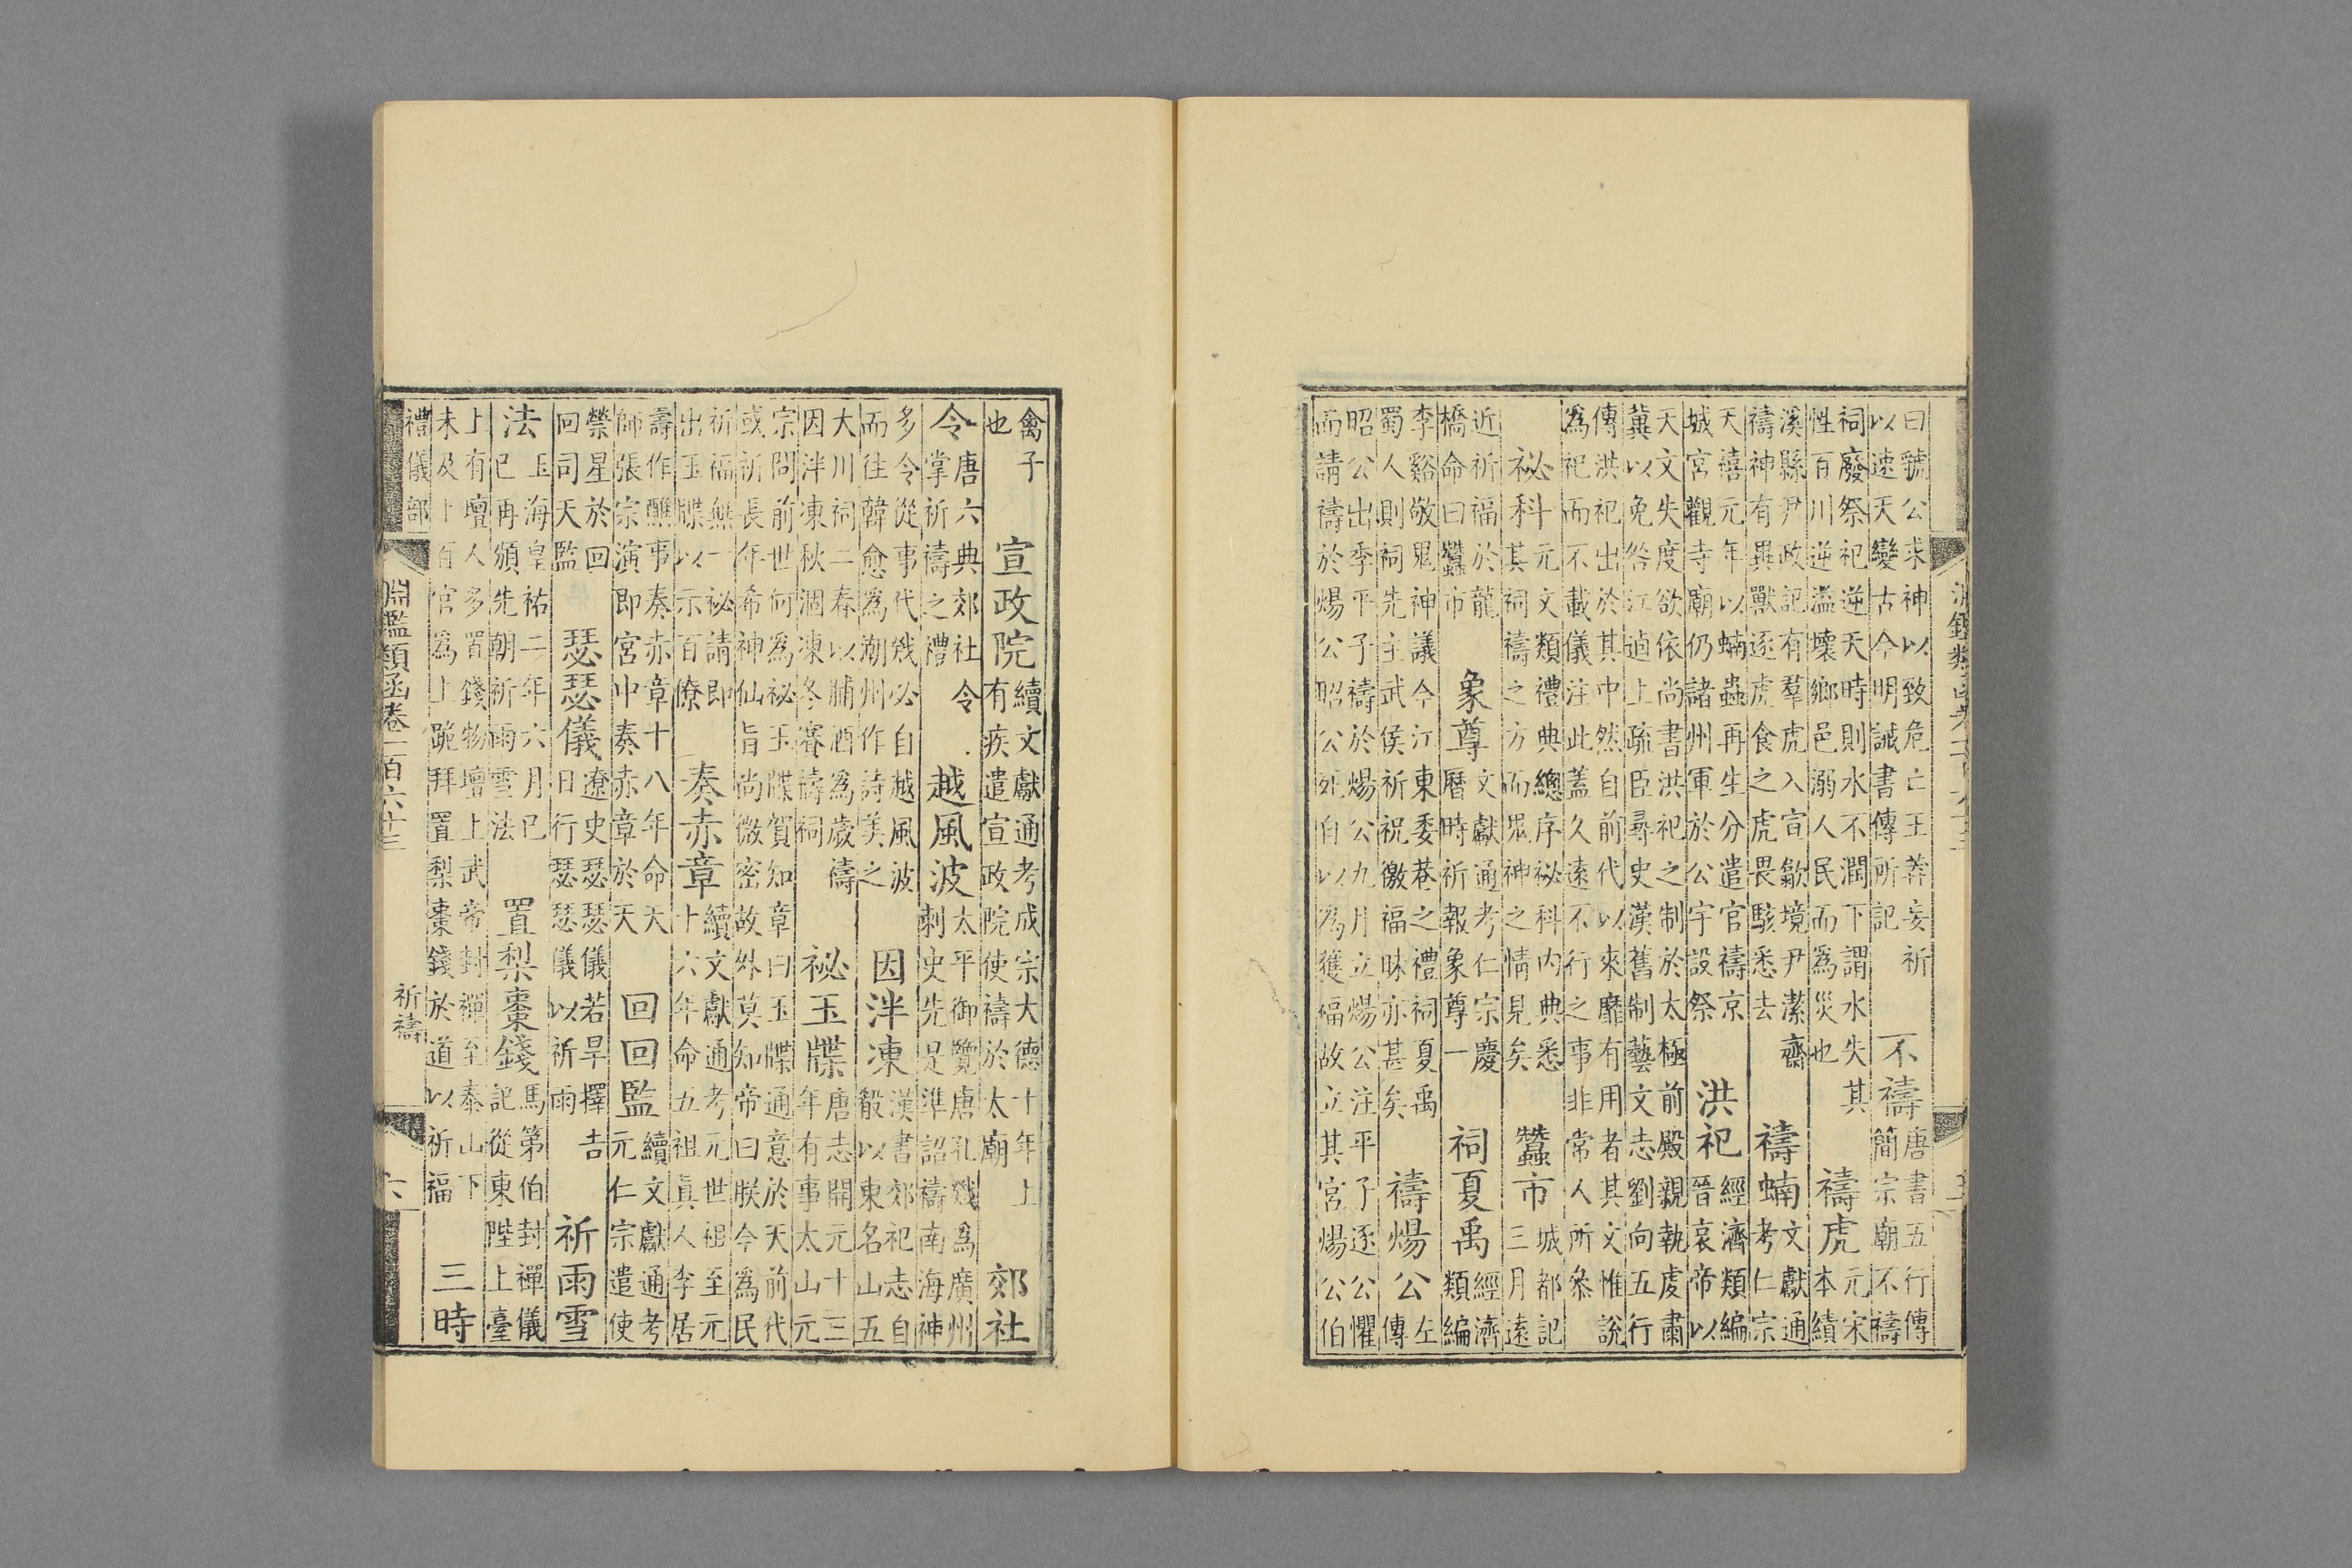 淵鑑類函卷一百六十三
曰虢公求神以致危亡王莽妄祈以速天變古今明誡書傳所記　不禱　唐書五行傳簡宗廟不禱
祠廢祭祀逆天時則水不潤下謂水失其性百川逆溢壞鄉邑溺人民而為災也　禱虎　元宋本績
溪縣尹政記有羣虎入宣歙境尹潔齋禱神有異獸逐虎食之虎畏駭悉去　禱蝻　文獻通考仁宗
天禧元年以蝻蟲再生分遣官禱京城宮觀寺廟仍諸州軍於公宇設祭　洪祀　經濟類編晉哀帝以
天文失度欲依尚書洪祀之制於太極前殿親執虔肅冀以免咎江逌上疏臣尋史漢舊制藝文志劉向五行
傳洪祀出於其中然自前代以來靡有用者其文惟說為祀而不載儀注此蓋久遠不行之事非常人所叅
祕科　元文類禮典總序祕科內典悉其祠禱之方而眾神之情見矣　蠶市　城都記三月遠
近祈福於龍橋命曰蠶市　象尊　文獻通考仁宗慶曆時祈報象尊一　祠夏禹　經濟類編
李谿敬鬼神議今江東委巷之禮祠夏禹蜀人則祠先主武侯祈祝徼福昧亦甚矣　禱煬公　左傳
昭公出季平子禱於煬公九月立煬公注平子逐公懼而請禱於煬公昭公死自以為獲福故立其宮煬公伯
禽子也　宣政院　續文獻通考成宗大德十年上有疾遣宣政院使禱於太廟　郊社
令　唐六典郊社令掌祈禱之禮　越風波　太平御覽唐孔戣為廣州刺史先是準詔禱南海神
多令從事代戣必自越風波而往韓愈為潮州作詩美之　因泮凍　漢書郊祀志自殽以東名山五
大川祠二春以脯酒為歲禱因泮凍秋涸凍冬賽禱祠　祕玉牒　唐志開元十三年有事太山元
宗問前世何為祕玉牒賀知章曰玉牒通意於天前代或祈長年希神仙旨尚微密故外莫知帝曰朕今為民
祈福無一祕請即出玉牒以示百僚　奏赤章　續文獻通考元世祖至元十六年命五祖真人李居
壽作醮事奏赤章十八年命天師張宗演即宮中奏赤章於天　回回監　續文獻通考元仁宗遣使
禜星於回回司天監　瑟瑟儀　遼史瑟瑟儀若旱擇吉日行瑟瑟儀以祈雨　祈雨雪
法　玉海皇祐二年六月已巳再頒先朝祈雨雪法　置梨棗錢　馬第伯封禪儀記從東陛上臺
上有壇人多置錢物壇上武帝封禪至泰山下未及上百官為上跪拜置梨棗錢於道以祈福　三時
禮儀部　淵鑑類函卷一百六十三　祈禱　六